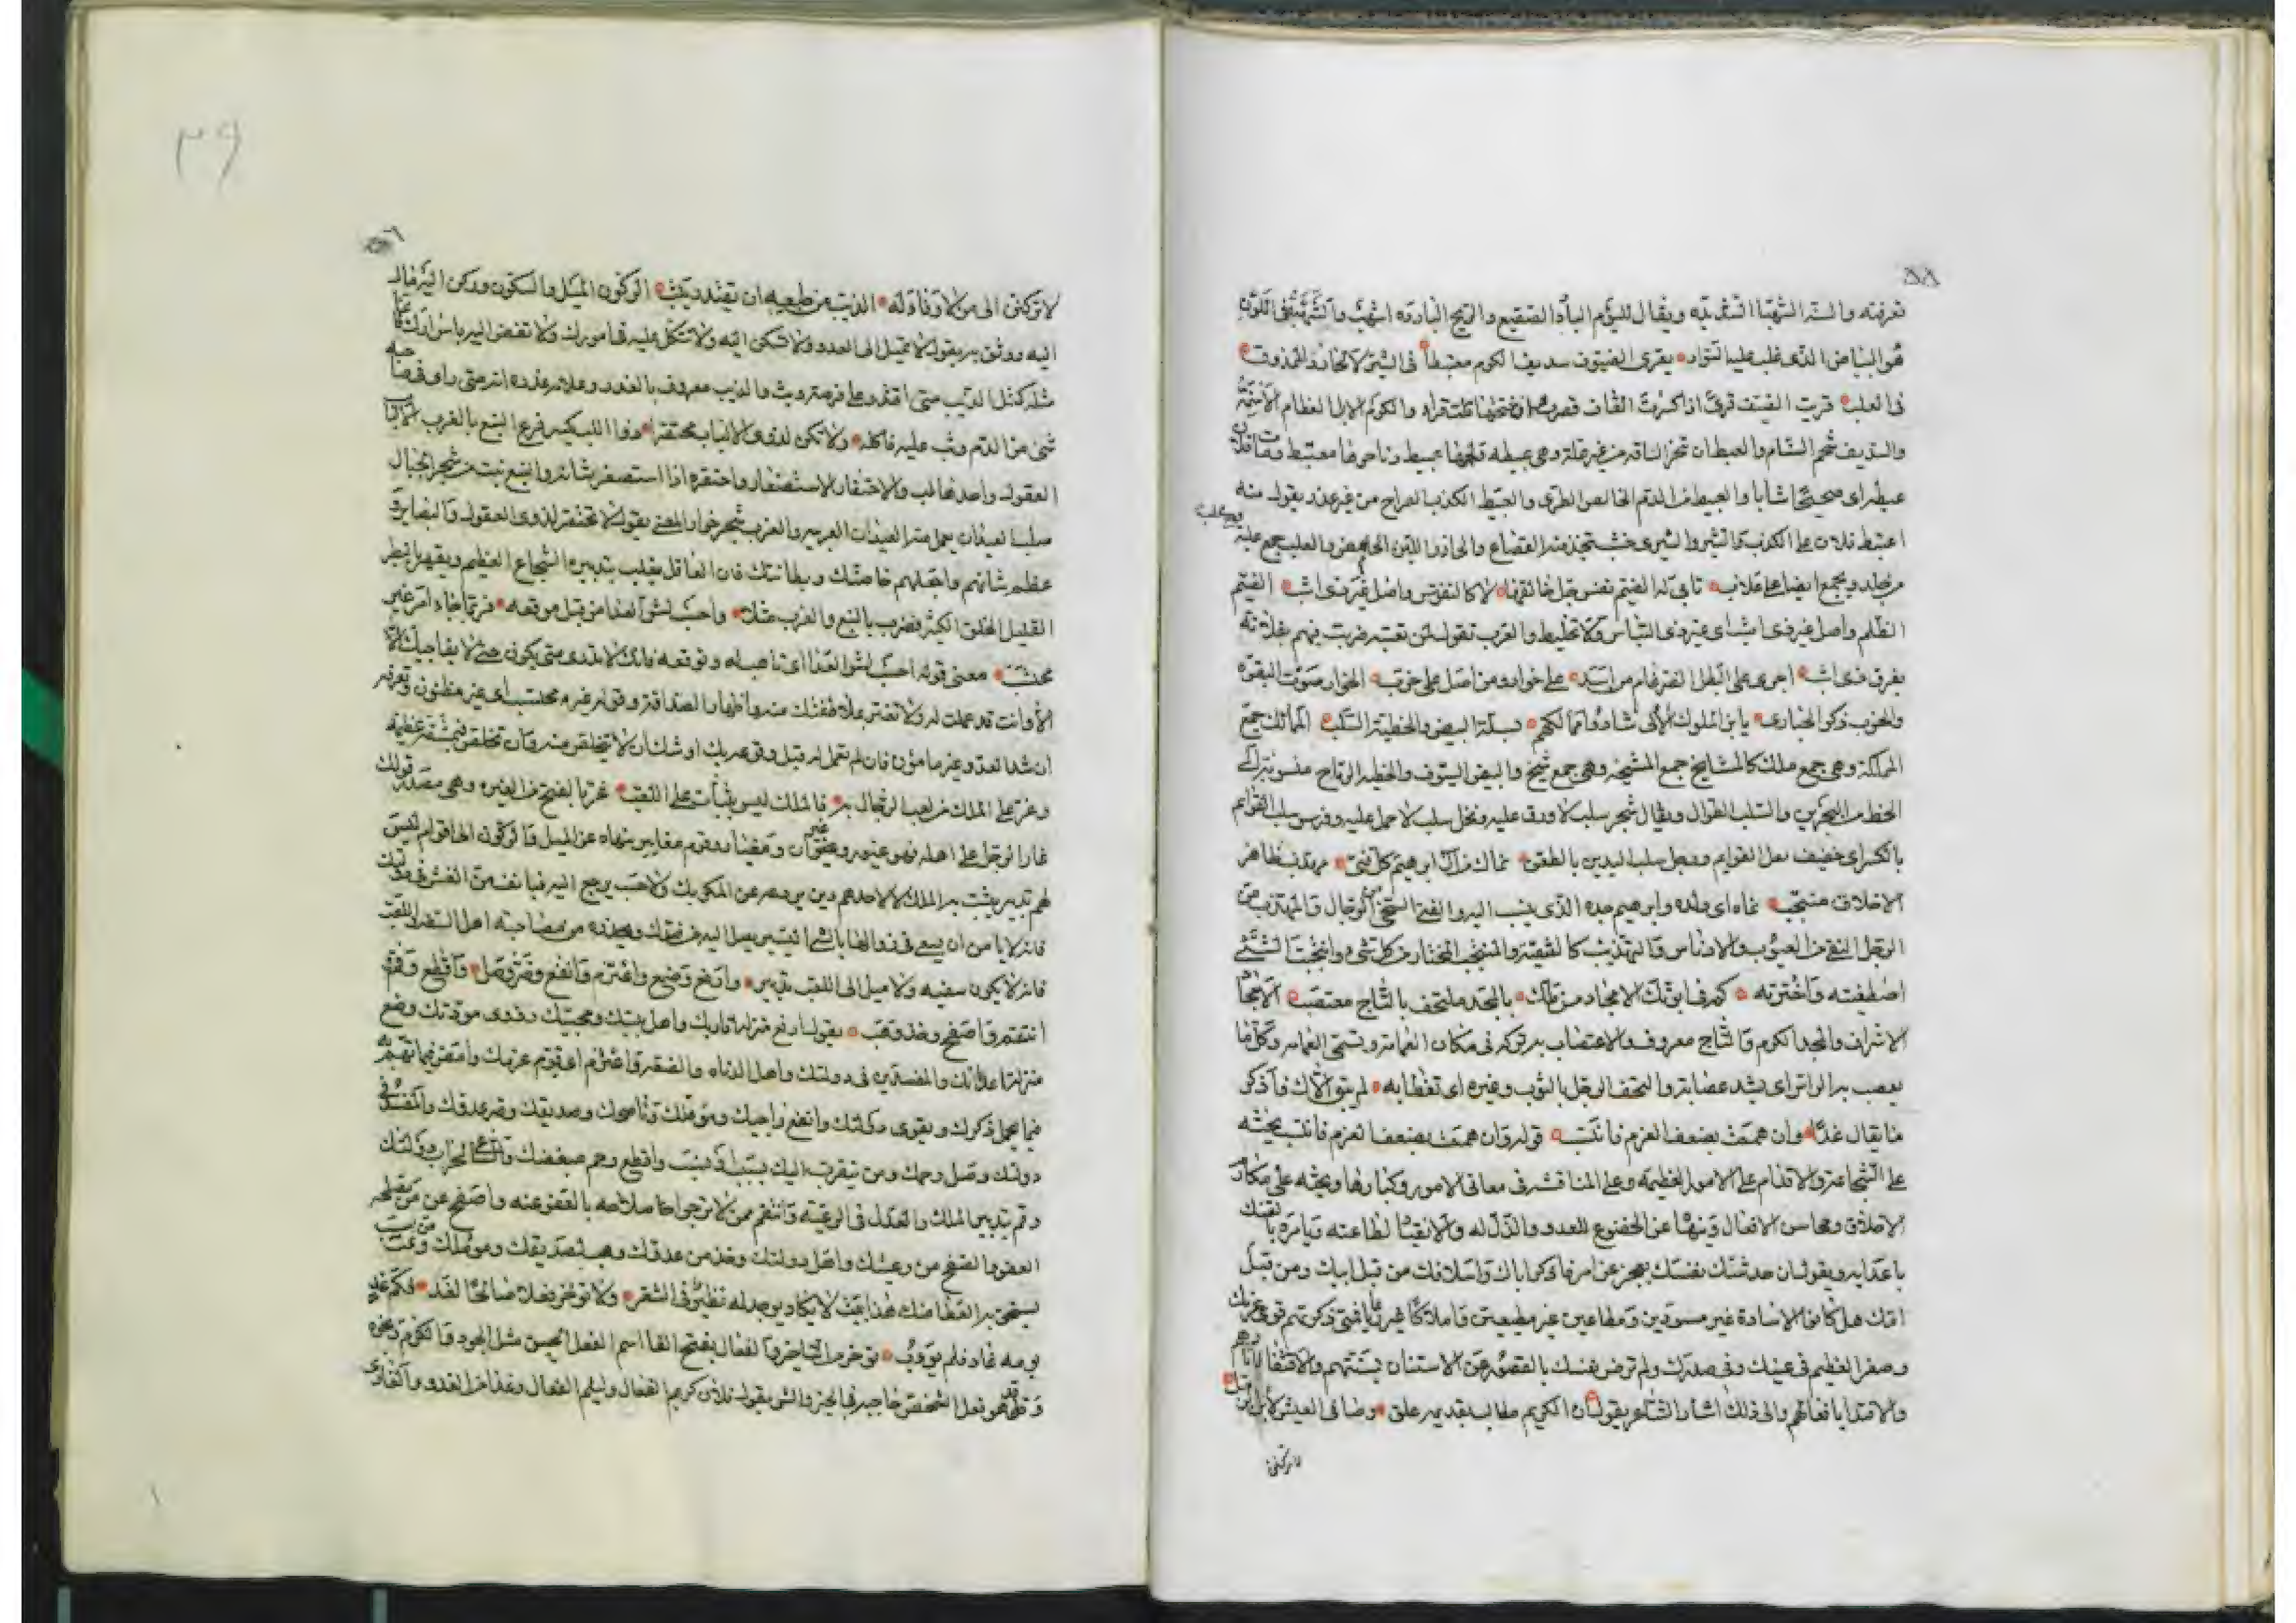 ٥٨
تعرفته والسنة الشهبا الشديده ويقال لليوم البارد الصقيع والريح البارده اشهب والشهبة في اللون
هو البياض الذي غلب عليه السواد يقري الضيوف سديف الكوم معتبطا في الشيز لا الحازر الممذوق
في العلب قريت الضيف قرى اذا كسرت القاف قصرت واذا فتحتها قلت قراء والكوم الابل العظام الاسنمة
والسديف شحم السنام والعبط ان تنحر الناقه من غير علة وهي عبيطه ولحمها عبيط وناحرها معتبط
عبطة اي صحيحا شابا والعبيط من الدم الخالص الطري والعبط الكذب الصراح من غير عذر يقول منه
اعتبط فلان علي الكذب والشيز والشيزى خشب تتخذ منه القصاع والحازر اللبن الحامض والعلب جمع علبه
من جلد ويجمع ايضا على علاب تابى له الضيم نفس جل خالقها لا كالنفوس واصل غير ذي اشب الضيم
الظلم واصل غير ذي اشب اي غير ذي التباس ولا تخليط والعرب تقول لمن تعيبه ضربت فيهم فلانة
بعرق ذي اشب اجرى على البطل الضرغام من اسد على خوار ومن اصل على خرب الخوار صوت البقرة
والخرب ذكر الحبارى يا بن الملوك الالى شادوا ممالكهم بسلة البيض والخطية السلب الممالك جمع
المملكة وهي جمع ملك كالمشايخ جمع المشيخه وهي جمع شيخ والبيض السيوف والخطيه الرماح منسوبة الى
الخط من البحرين والسلب الطوال ويقال شجر سلب لا ورق عليه ونخل سلب لا حمل عليه وفرس سلب القوايم
بالكسر اي خفيف نقل القوايم ورجل سلب اليدين بالطعن نماك من آل ابرهيم كل فتى مهذب ظاهر
الاخلاق منتجب نماه اي ولده وابرهيم جده الذي ينسب اليه والفتى السخي من الرجال والمهذب من
الرجل النقي من العيوب والادناس والتهذيب كالتنقية والمنتجب المختار من كل شيء وانتجبت الشيء
اصطفيته واخترته كم في ابوتك الامجاد من ملك بالمجد ملتحف بالتاج معتصب الامجاد
الاشراف والمجد الكرم والتاج معروف والاعتصاب به تركه في مكان العمامة وتسمى العمامه وكل ما
يعصب به الراس اي يشد عصابة والتحف الرجل بالثوب وغيره اي تغطا به لم يبق الاك فاذكر
ما يقال غدا وان هممت بضعف العزم فانتسب قوله وان هممت بضعف العزم فانتسب يحثه
على الشجاعة والاقدام على الامور العظيمه وعلى المنافسة في معاني الامور وكبارها ويحثه على مكارم
الاخلاق ومحاسن الافعال وينهاه عن الخضوع للعدو والذل له والانقياد لطاعته ويامره بالفتك
باعدايه ويقول ان حدثتك نفسك بعجز عن امر فاذكر اباك واسلافك من قبل ابيك ومن قبل
امك هل كانوا الا سادة غير مسودين ومطاعين غير مطيعين واملاكا فمتى ذكرتهم قوى عزمك
وصغر العظيم في عينك وفي صدرك ولم ترض نفسك بالقصور عن الاستنان بسنتهم والاقتفا لاثارهم
والاقتدا بافعالهم والى ذلك اشار الشاعر بقوله ان الكريم طالب بقديمه علق وضافي العيش
لا تركنن
٣٩
لا تركنن الى من لا وفاء له الذيب من طبعه ان يقتدر يثب الركون الميل والسكون وركن اليه مال
اليه ووثق به يقول لا تميل الى العدو ولا تسكن اليه ولا تتكل عليه في امورك ولا تفض اليه باسرارك
مثله كمثل الذيب متى اقتدر على فرصة وثب والذيب معروف بالغدر وعلامة غدره انه متى راى في صاحبه
شيء من الدم وثب عليه فاكله ولا تكن لذوي الالباب محتقرا ذوا اللب يكسر فرع النبع بالغرب الالباب
العقول واحدها لب والاحتقار الاستصغار واحتقره اذا استصغر شانه والنبع نبت من شجر الجبال
صلب العيدان يعمل منه العيدان العربيه والغرب شجر خوار المعنى يقول لا تحتقر لذوي العقول والبصاير
عظم شانهم واجعلهم خاصتك وبطانتك فان العاقل يغلب بتدبيره الشجاع العظيم ويقهر
القليل الخلق الكثير فضرب بالنبع والغرب مثلا واحسب لشر العدا من قبل موقعه فربما جاء امر غير
محتسب معنى قوله احسب لشر العدا اي تاهب له وتوقعه فانك لا تدري متى يكون حتى لا يفاجيك الا
الا وانت قد عملت له ولا تغتر بملاطفتك منه واظهار الصداقة وقوله غير محتسب اي غير مظنون
ان شد العدو غير مامون فان لم تعمل له قبل وقوعه بك اوشك ان لا تتخلص منه وان تخلصت فبمشقة عظيمة
وغر على الملك من لعب الرجال به فالملك ليس بثابت على اللعب غر بالفتح من الغيره وهي مصدر قولك
غار الرجل على اهله فهو غيور وغيران ومغيار وقوم مغايير ينهاه عن الميل والركون الى اقوام ليس
لهم تدبير يثبت به الملك لا لاحدهم دين يردعه عن المكر بك ولا حسب يرجع اليه فيانف من الغش في دولتك
فانه لا يامن ان يسعى في زوالها بالشيء اليسير يصل اليه من عدوك ويحذره من مصاحبة اهل السفه واللعب
فانه لا يكون سفيه ولا ميل الى اللعب بتدبير وارفع وضع واعتزم وانفع وضر وصل واقطع وقم
انتقم واصفح وخذ وهب يقول ارفع منزلة اقاربك واهل بيتك ومحبيك وذوي مودتك وضع
منزلة اعدائك والمفسدين في دولتك واهل الدناه والضعه واعتزم اي قوم عزمك وامض فيما تهم به
فيما يجمل ذكرك ويقوي دولتك وانفع راجيك ومؤملك وناصحك وصديقك وضر عدوك والمفسد في
دولتك وصل رحمك ومن يتقرب اليك بسبب او نسب واقطع رحم مبغضك والساعي لخراب دولتك
وقم بتدبير الملك والعدل في الرعية وانتقم ممن لا ترجوا صلاحه بالعفو عنه واصفح عن من يصلحه
العفو والصفح من رعيتك واهل دولتك وخذ من عدوك وهب لصديقك ومؤملك ومن
يستحق به العطا منك هذا بيت لا يكاد يوجد له نظير في الشعر ولا تؤخر فعلا صالحا لغد فكم غد
يومه غاد فلم يؤوب تؤخر من التاخير والفعال بفتح الفا اسم الفعل الحسن مثل الجود والكرم ونحوه
وقد هو فعل الشخص خاصه في الخير والشر يقول فلان كريم الفعال ولئيم الفعال وغدا من الغدو والغادي